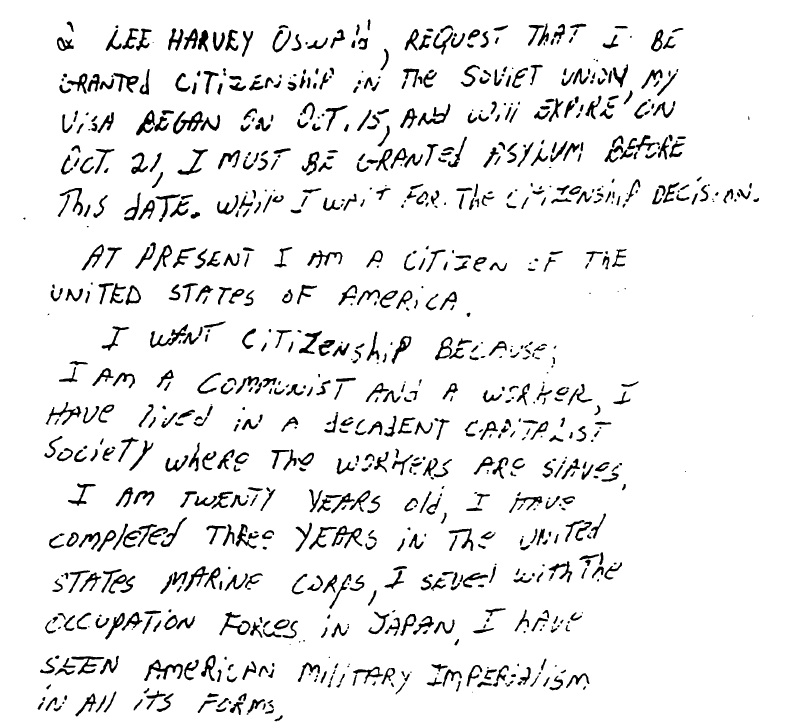 I LEE HARVEY OSWAld, REQUEST THAT I BE
GRANTEd CITIZENShiP iN The SOVIET UNION, MY
ViSA BEGAN ON OCT. 15, ANd Will EXPIRE ON
OCT. 21, I MUST BE GRANTEd ASYLUM BEFORE
This dATE. While I WAIT FOR The CITIZENSHIP DECISiON.
AT PRESENT I AM A CiTiZEN OF THE
UNiTED STATES OF AMERiCA.
I WANT CiTiZENshiP BECAUSE;
I AM A COMMUNIST ANd A WORKER, I
HAVE lived iN A dECAdENT CAPITALIST
SOCiETY where The WORKERS ARE SlAVES.
I AM TWENTY YEARS Old, I HAVE
COMPlETEd THREE YEARS iN The UNITEd
STATES MARINE CORPS, I SEVEd with The
OCCUPATiON FORCES iN JAPAN, I hAVE
SEEN AMERICAN MiliTARY IMPERiAlISM
iN All iTS FORMS,